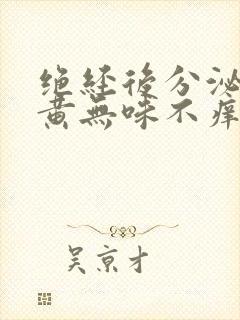 绝经後分泌
黄無味不痒
吴京才